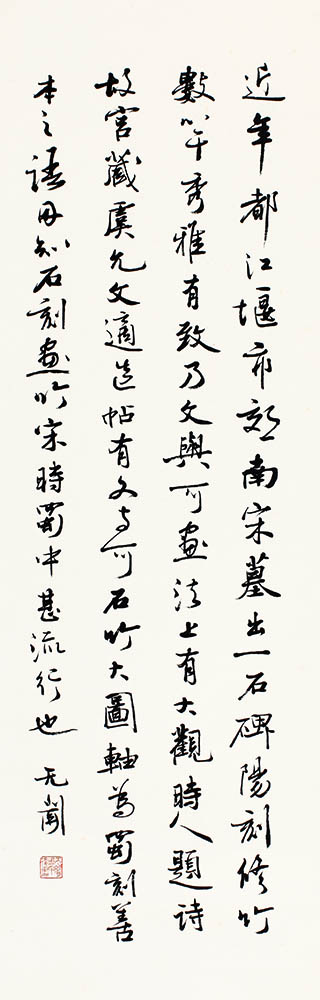 近年都江堰市郊南宋墓出一石碑陽刻修竹
數竿秀雅有致乃文與可畫法上有大觀時人題詩
故宮藏虞允文適造帖有文与可石竹大圖軸爲蜀刻善
本之語因知石刻畫竹宋時蜀中甚流行也
无聞